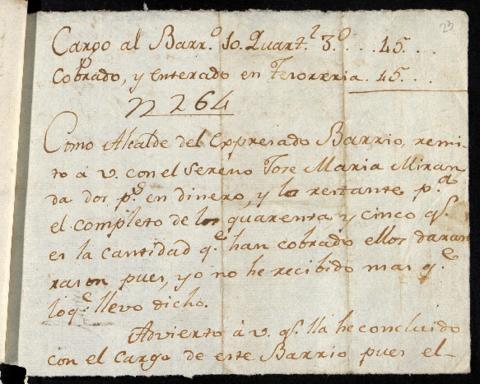 23
Cargo al Barr.º 10. Quart.l 3.º . . . 45. . .
Cobrado, y enterado en Tesoreria. 45. . .
N 264
Como Alcalde del Expresado Barrio, remi-
to á v. con el Sereno Jose Maria Miran
da dos p.s en dinero, y lo restante p.a
el completo de los quarenta y cinco q.e
es la cantidad q.e han cobrado ellos daran
rason pues, yo no he recibido mas q.e
loq.e llevo dicho.
Advierto á v. q.e llá he concluido
con el Cargo de este Barrio pues el-